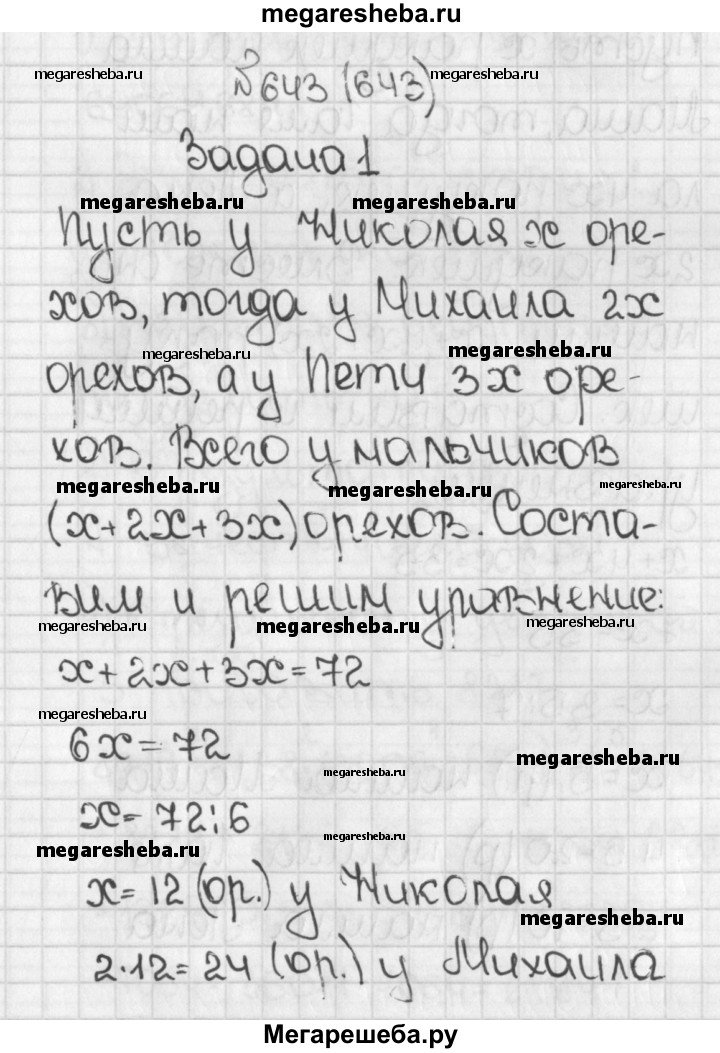 megaresheba.ru
megaresheba.ru №643 (643) megaresheba.ru
Задача 1
megaresheba.ru megaresheba.ru
Пусть у Николая x оре-
хов, тогда у Михаила 2x
megaresheba.ru megaresheba.ru
орехов, а у Пети 3x оре-
хов. Всего у мальчиков
megaresheba.ru megaresheba.ru megaresheba.ru
(x+2x+3x) орехов. Соста-
вим и решим уравнение:
megaresheba.ru megaresheba.ru megaresheba.ru
x+2x+3x=72
megaresheba.ru
6x=72
megaresheba.ru
megaresheba.ru
x=72:6
megaresheba.ru
megaresheba.ru
x=12 (ор.) у Николая
megaresheba.ru
2·12=24 (ор.) у Михаила
Мегарешеба.ру